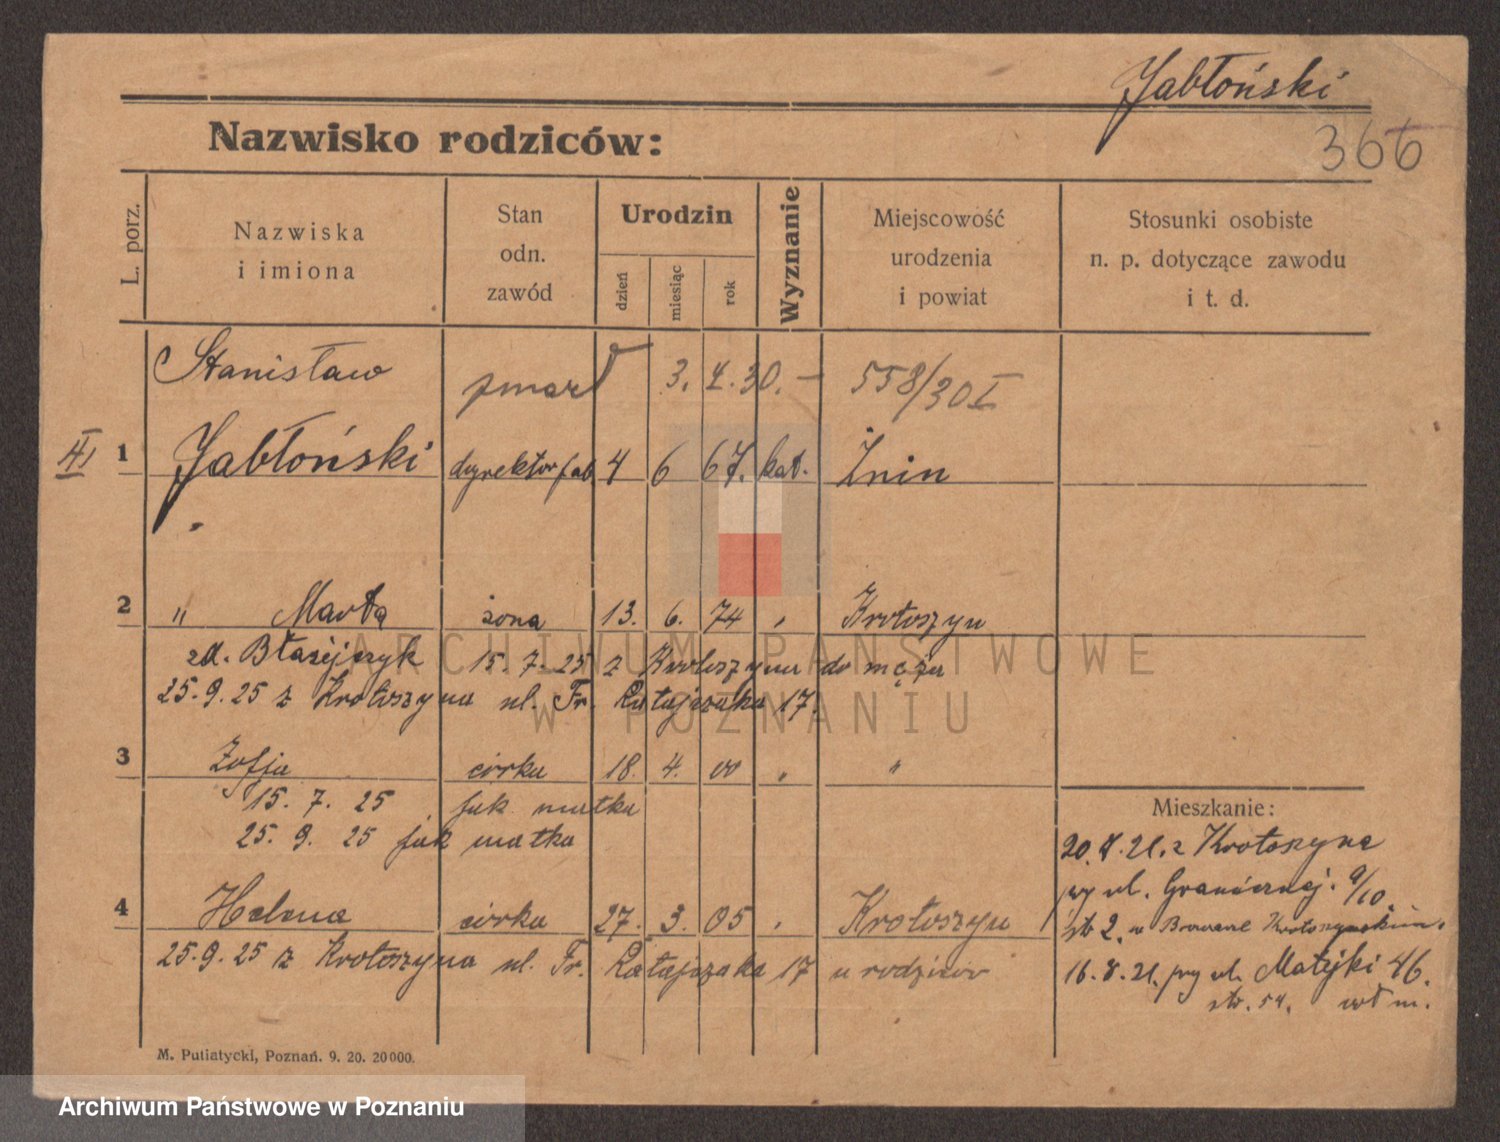 Jabłoński
366
Nazwisko rodziców:
L. porz.
Nazwiska
i imiona
Stan
odn.
zawód
Urodzin
dzień
miesiąc
rok
Wyznanie
Miejscowość
urodzenia
i powiat
Stosunki osobiste
n. p. dotyczące zawodu
i t. d.
Stanisław zmarł 3. 4. 30. — 558/30 I
1 Jabłoński dyrektor fab. 4 6 67. kat. Żnin
2 " Marta żona 13. 6. 74 " Krotoszyn
zd. Błażejczyk 15. 7. 25 z Krotoszyna do męża
25. 9. 25 z Krotoszyna ul. Fr. Ratajczaka 17.
3 Zofja córka 18. 4. 00 " "
15. 7. 25 jak matka
25. 9. 25 jak matka
4 Helena córka 27. 3. 05 " Krotoszyn
25. 9. 25 z Krotoszyna ul. Fr. Ratajczaka 17 u rodziców
Mieszkanie:
20. 7. 21. z Krotoszyna
przy ul. Granicznej. 9/10.
str 2. w
16. 8. 21. przy ul. Matejki 46.
str. 54. wł m.
M. Putiatycki, Poznań. 9. 20. 20000.
ARCHIWUM PAŃSTWOWE
W POZNANIU
Archiwum Państwowe w Poznaniu